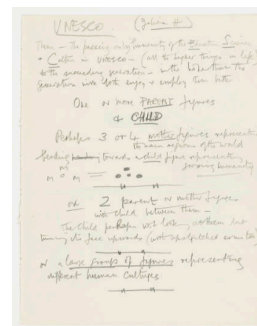 UNESCO. (Julian H)
Theme – The passing on by humanity of the Education Science
& Culture in UNESCO – (all the higher things in life)
to the succeeding generation – in the hope that the
generation will both enjoy & employ them better
One or more PARENT figures
& CHILD
Perhaps 3 or 4 mother figures representing
the main regions of the world
leading towards a child figure representing
growing humanity
M
M M
or 2 parent or mother figures
with child between them –
The Child perhaps not looking at them but
turning its face upwards (with outstretched arms too)
or a large group of figures representing
different human Cultures